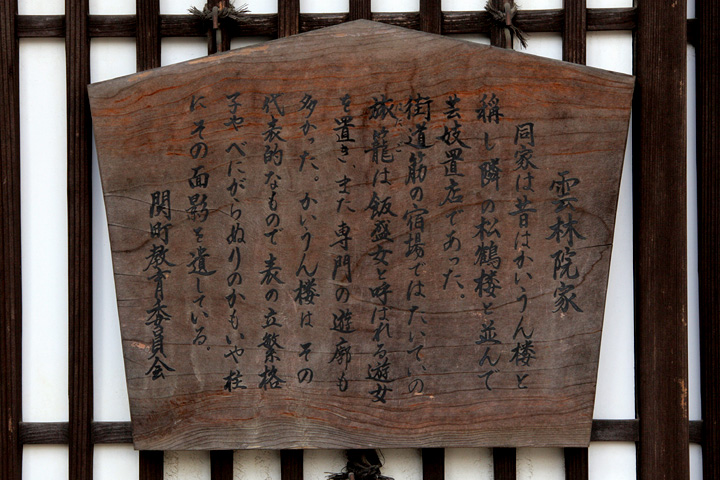 雲林院家
同家は昔はかいうん楼と
称し隣の松鶴楼と並んで
芸妓置店であった。
街道筋の宿場ではたいていの
旅籠は飯盛女と呼ばれる遊女
を置き、また専門の遊廓も
多かった。かいうん楼は その
代表的なもので 表の立繁格
子や べにがらぬりのかもいや柱
に その面影を遺している。
関町教育委員会